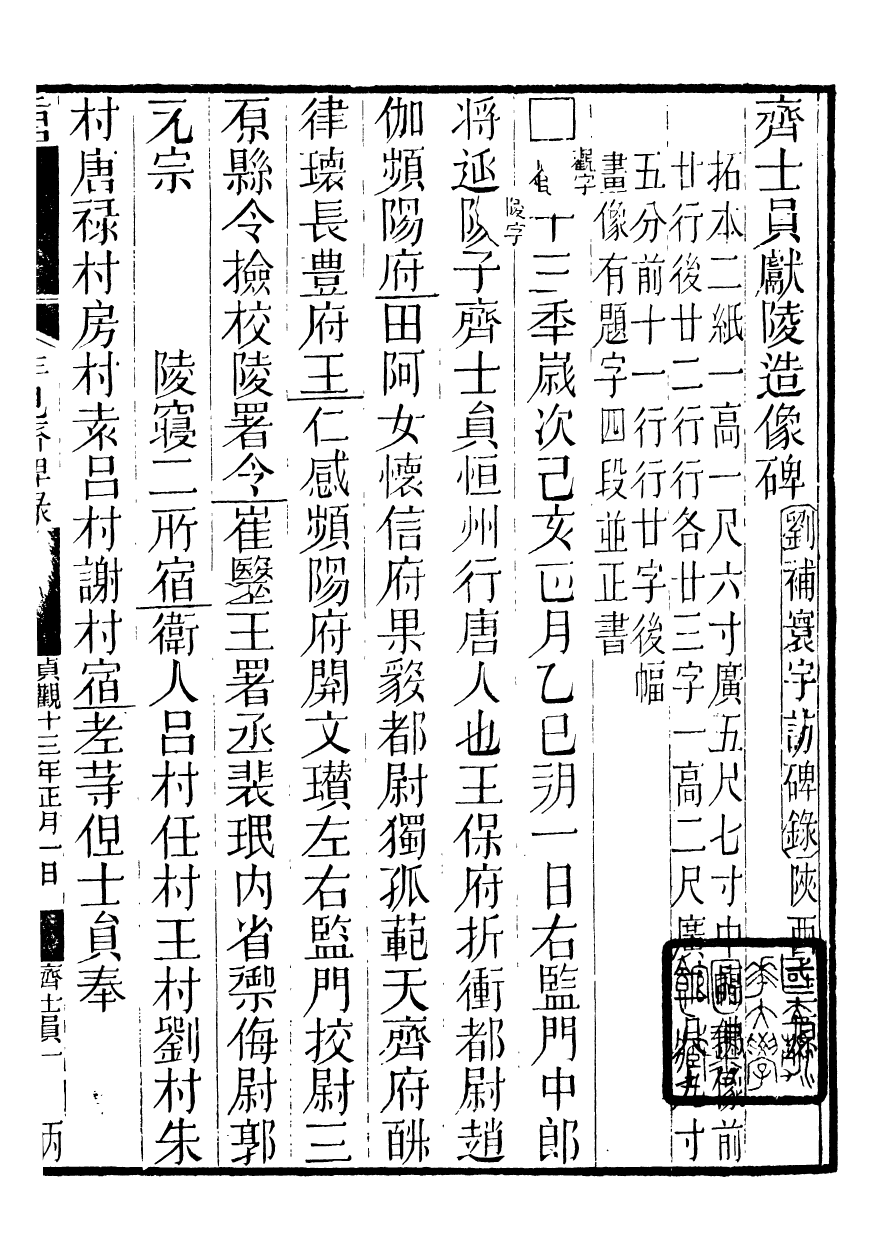 齊士員獻陵造像碑 劉補寰宇訪碑錄 陝西
拓本二紙一高一尺六寸廣五尺七寸中佛像前
廿行後廿二行行各廿三字一高二尺廣寸
五分前十一行行廿字後幅
畫像有題字四段並正書
□觀字十三秊嵗次己亥四月乙巳朔一日右監門中郎
将延陵字子齊士貟恒州行唐人也王保府折衝都尉趙
伽頻陽府田阿女懷信府果毅都尉獨孤範天齊府
律瓌長豊府王仁感頻陽府開文瓚左右監門挍尉三
原縣令撿校陵署令崔毉王署丞裴珉内省禦侮尉郭
元宗 陵寢二所宿衞人呂村任村王村劉村朱
村唐禄村房村袁呂村謝村宿老䓁但士貟奉
貞觀十三年正月一日 齊士員一 丙